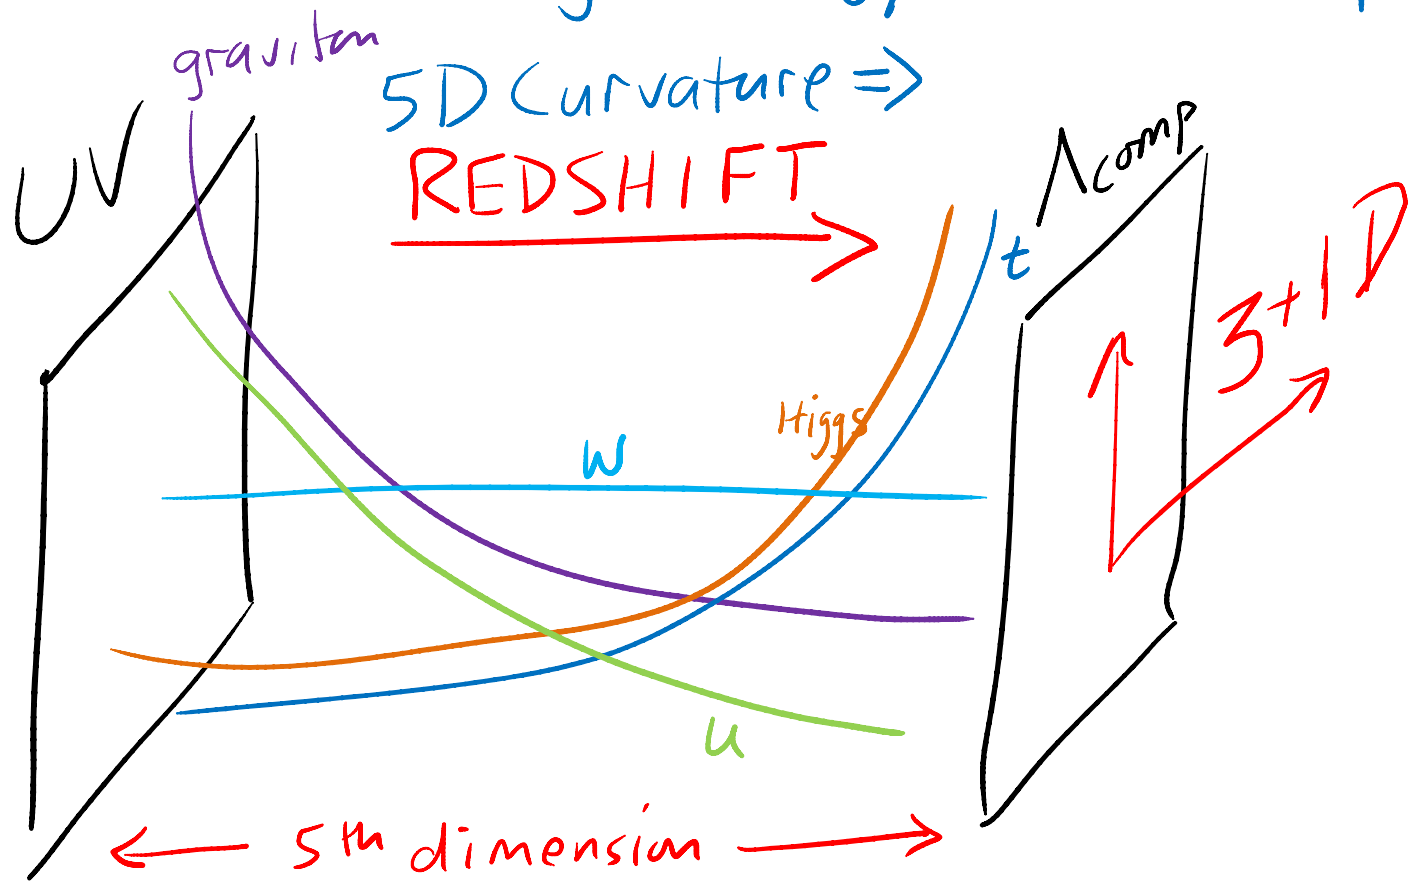 graviton
5D Curvature ⇒
UV
REDSHIFT
Λcomp
t
3+1D
Higgs
W
u
5th dimension